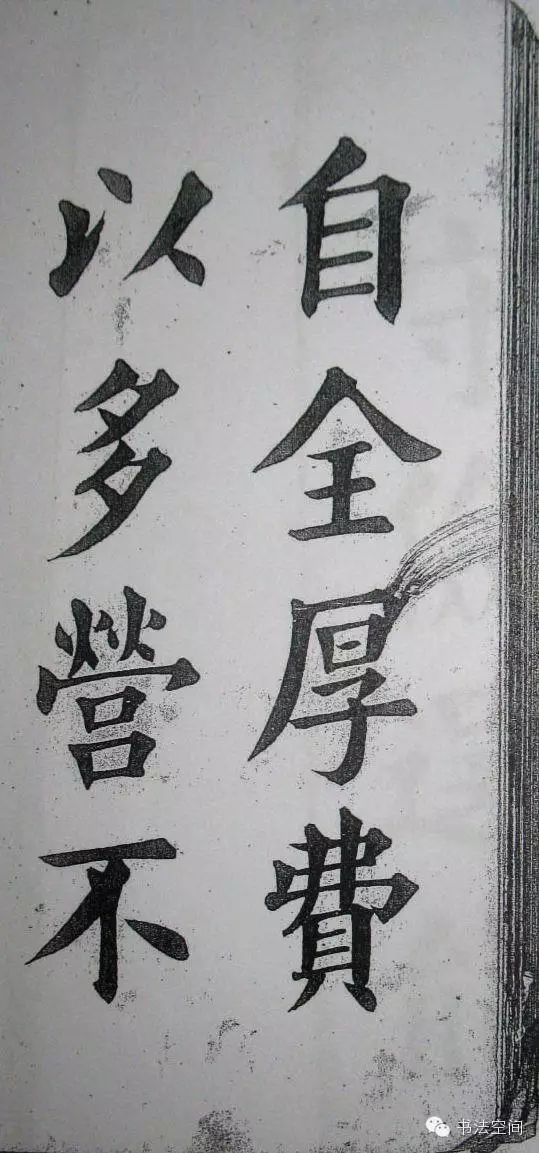 自全厚費
以多營不
书法空间